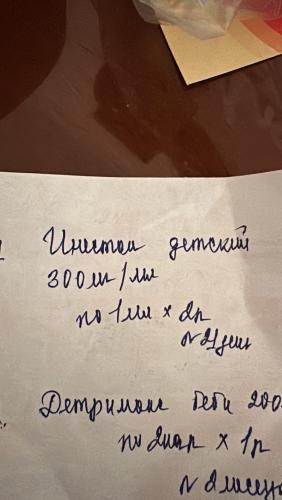 Инстои детский
300 ш/мл
по 1 мл × 2р
№ 21 день
Детримакс беби 200
по 2 кап × 1р
№ 2 месяц